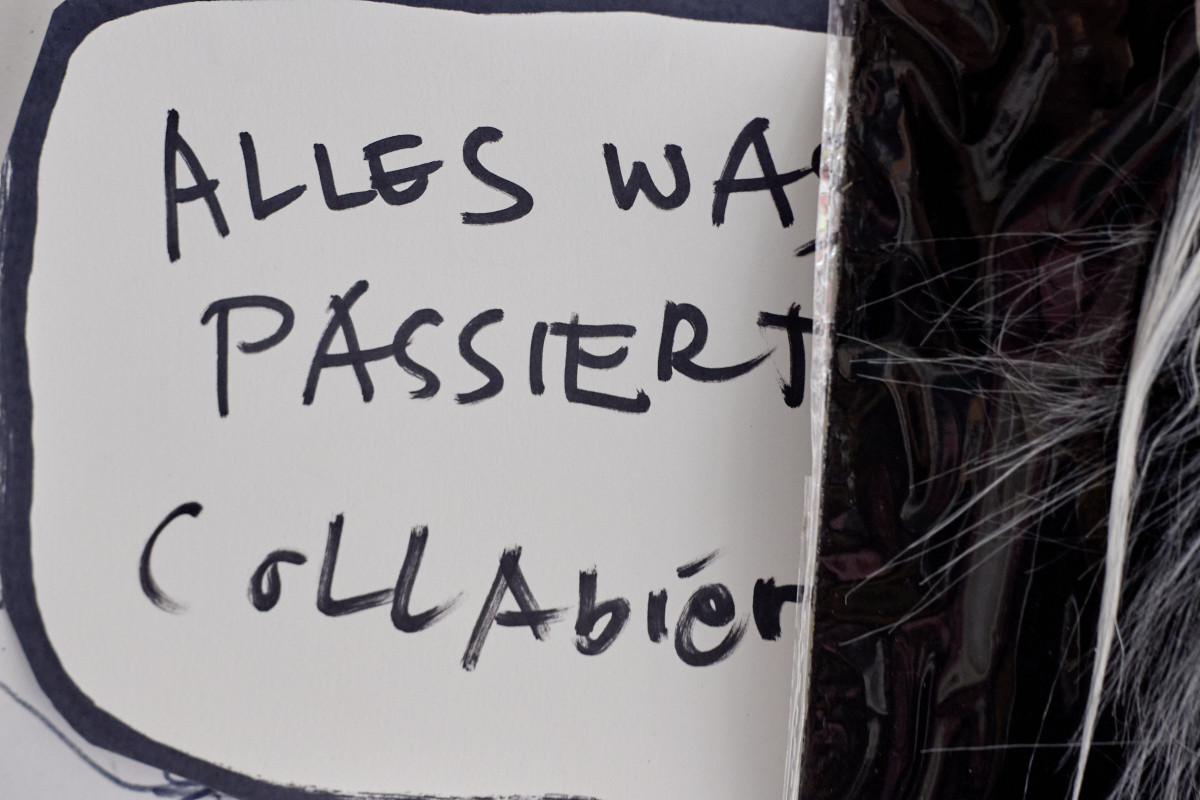 ALLES WAS
PASSIERT
CoLLAbiér